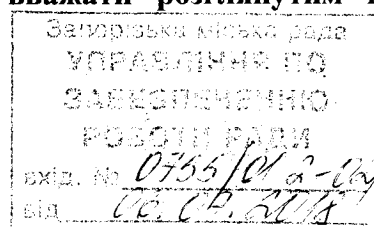 вважати розглянутим
Запорізька міська рада
УПРАВЛІННЯ ПО
ЗАБЕЗПЕЧЕННЮ
РОБОТИ РАДИ
вхід. № 0755/01 2-02
від